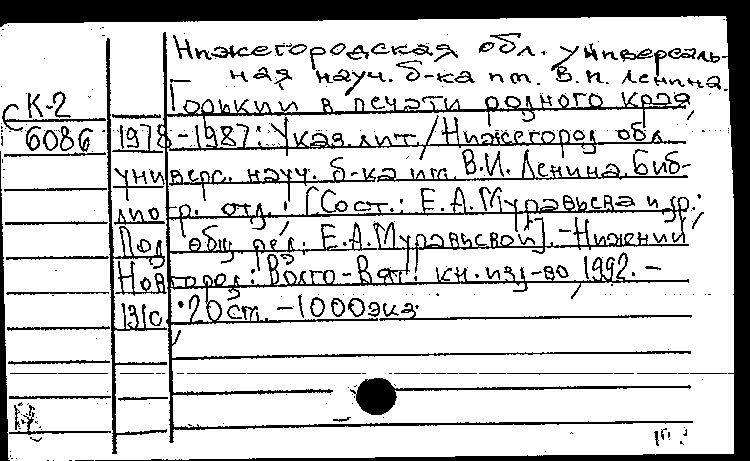 Нижегородская обл. универсаль-
ная науч. б-ка им. В.И. Ленина.
СК-2 Горький в печати родного края,
6086 1978-1987: Указ. лит. / Нижегород. обл.
универс. науч. б-ка им. В.И. Ленина. Биб-
лиогр. отд.; [Сост.: Е.А. Муравьева и др.;
Под общ. ред. Е.А. Муравьевой]. - Нижний
Новгород: Волго-Вят. кн. изд-во, 1992. -
131с.; 20 см. - 1000 экз.